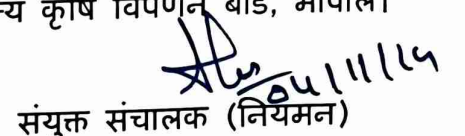 कृषि विपणन बोर्ड, भोपाल।
04/11/14
संयुक्त संचालक (नियमन)